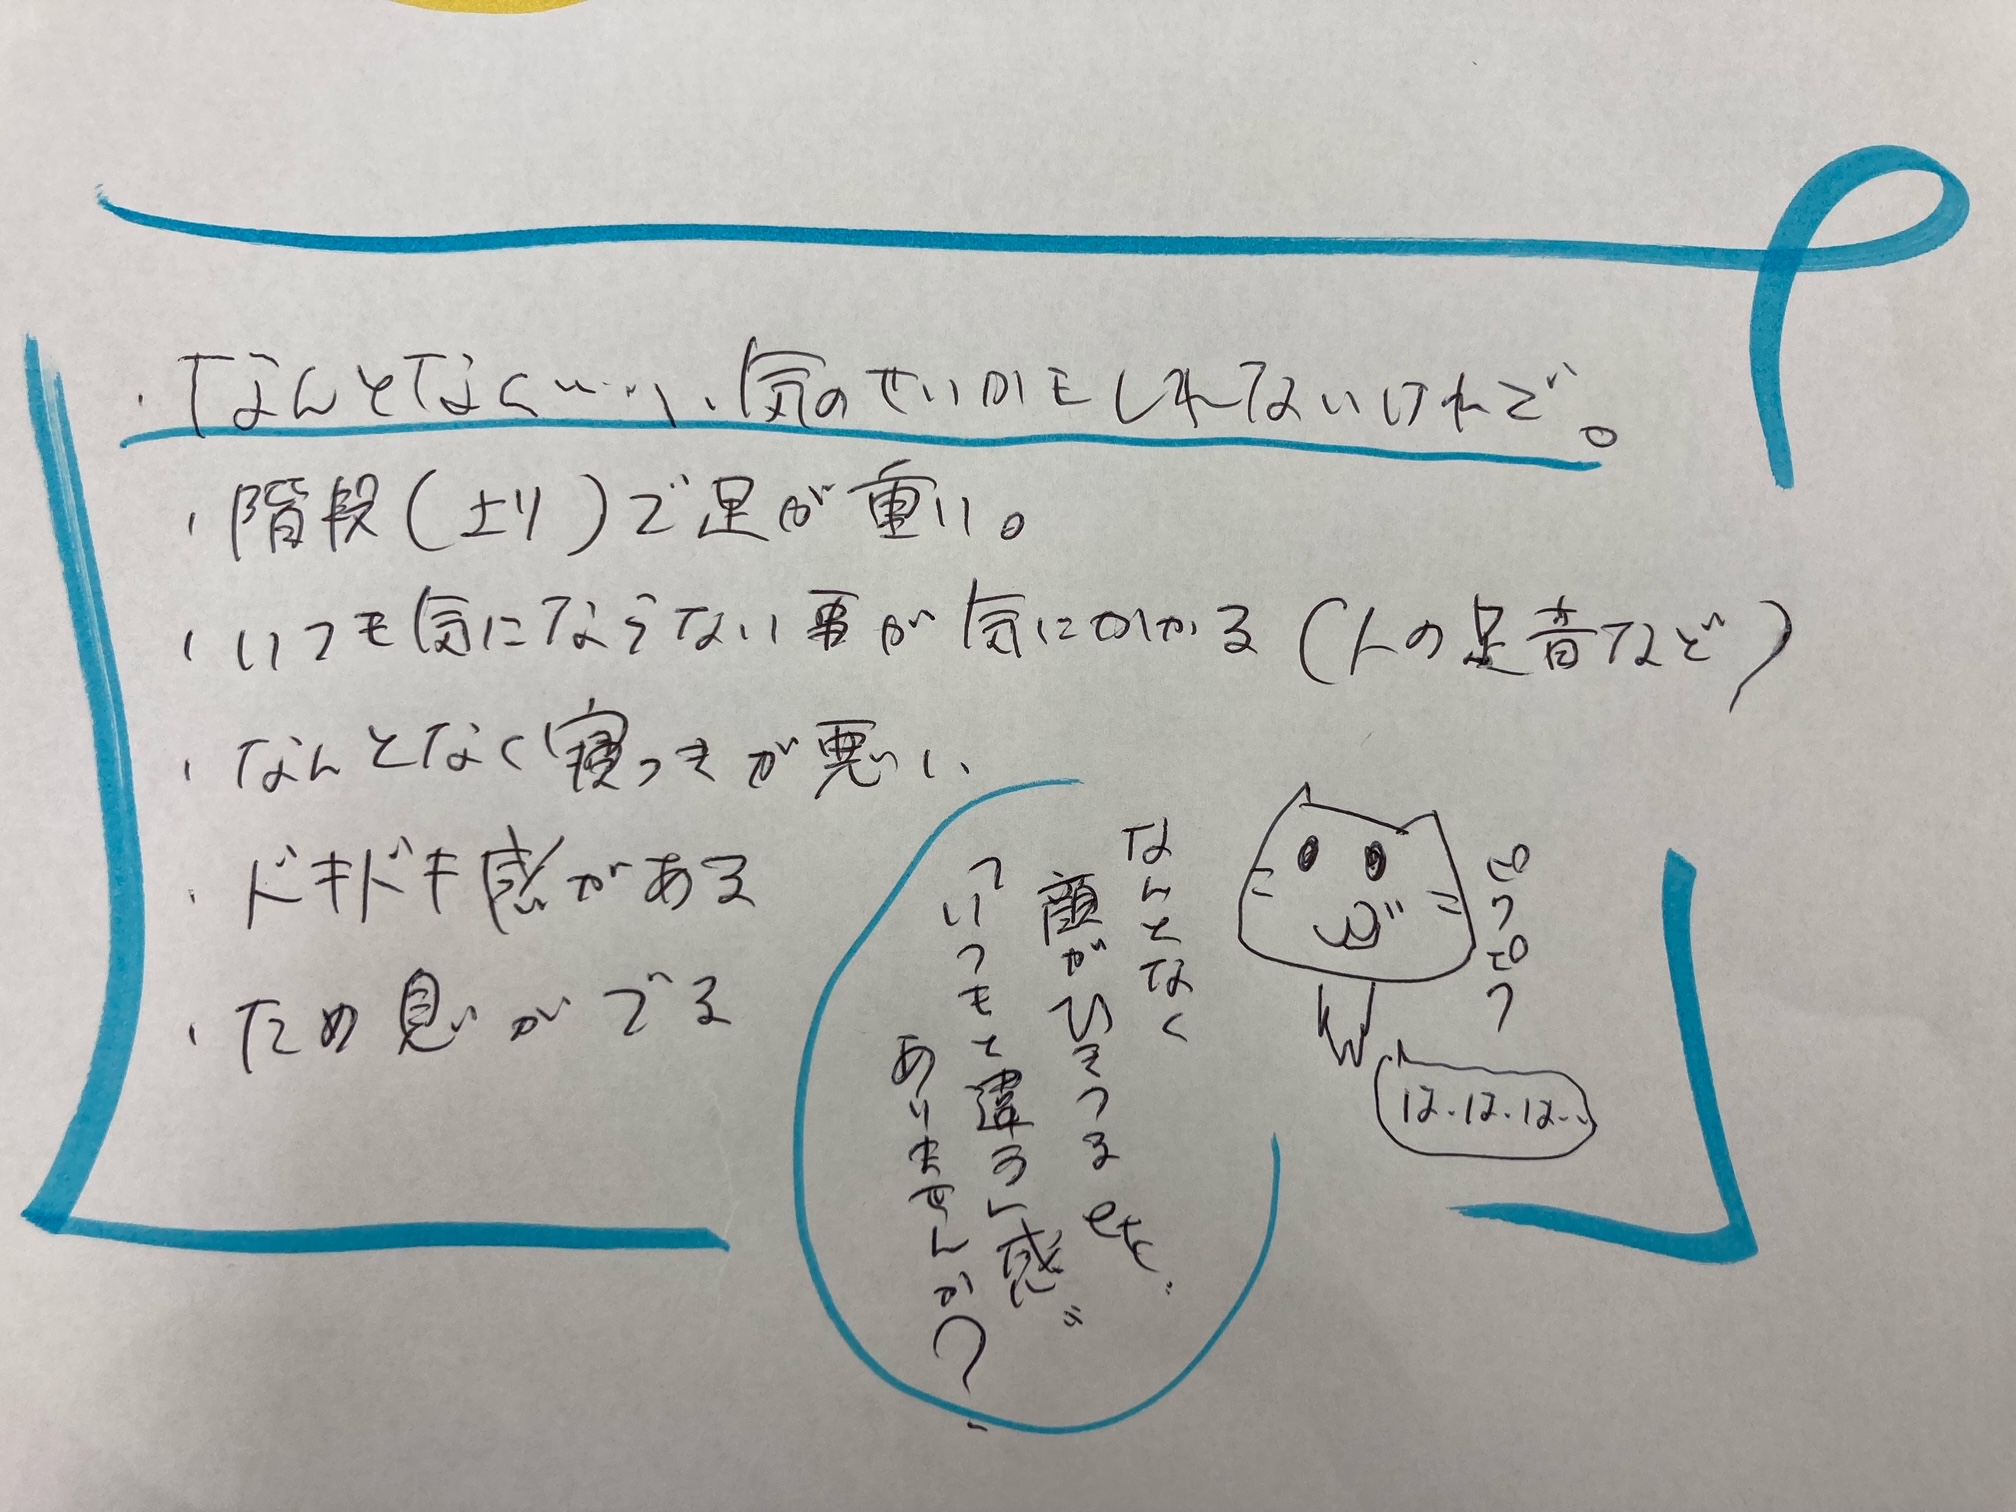 ・なんとなく…、気のせいかもしれないけれど。
・階段(上り)で足が重い。
・いつも気にならない事が気にかかる(人の足音など)
・なんとなく寝つきが悪い、
・ドキドキ感がある
・ため息がでる
なんとなく
顔がひきつる etc..
"いつもと違う感"
ありませんか?
ピクピク
は、は、は…